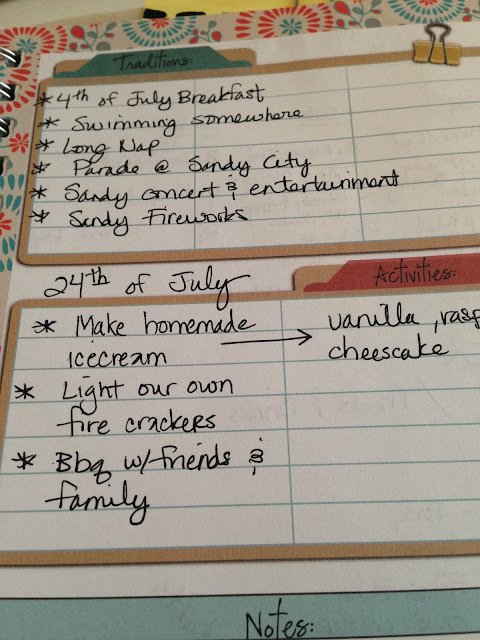 Traditions:
* 4th of July Breakfast
* Swimming somewhere
* Long Nap
* Parade @ Sandy City
* Sandy concert & entertainment
* Sandy Fireworks
24th of July
Activities:
* Make homemade → vanilla, rasp
icecream cheescake
* Light our own
fire crackers
* Bbq w/friends &
family
Notes: